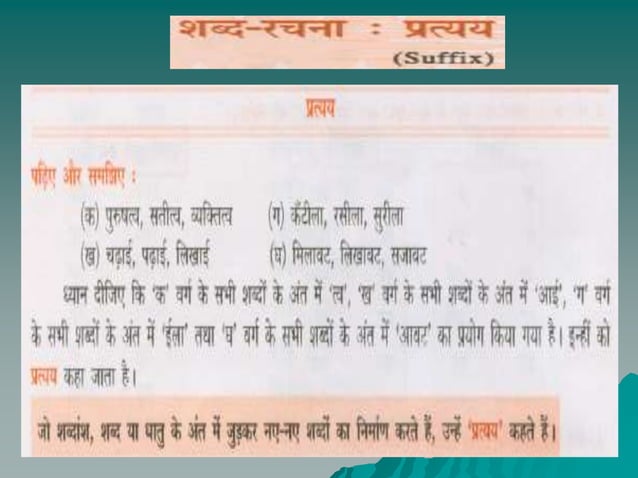 शब्द-रचना : प्रत्यय
(Suffix)
प्रत्यय
पढ़िए और समझिए :
(क) पुरुषत्व, सतीत्व, व्यक्तित्व (ग) कँटीला, रसीला, सुरीला
(ख) चढ़ाई, पढ़ाई, लिखाई (घ) मिलावट, लिखावट, सजावट
ध्यान दीजिए कि ‘क’ वर्ग के सभी शब्दों के अंत में ‘त्व’, ‘ख’ वर्ग के सभी शब्दों के अंत में ‘आई’, ‘ग’ वर्ग
के सभी शब्दों के अंत में ‘ईला’ तथा ‘घ’ वर्ग के सभी शब्दों के अंत में ‘आवट’ का प्रयोग किया गया है। इन्हीं को
प्रत्यय कहा जाता है।
जो शब्दांश, शब्द या धातु के अंत में जुड़कर नए-नए शब्दों का निर्माण करते हैं, उन्हें ‘प्रत्यय’ कहते हैं।